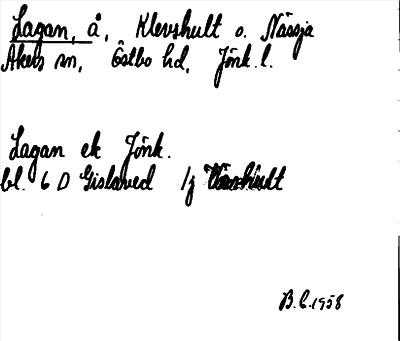 Lagan, å, Klevshult o. Nässja
Åkers sn, Östbo hd, Jönk. l.
Lagan ek Jönk.
bl. 6 D Gislaved 1j
B.E. 1958